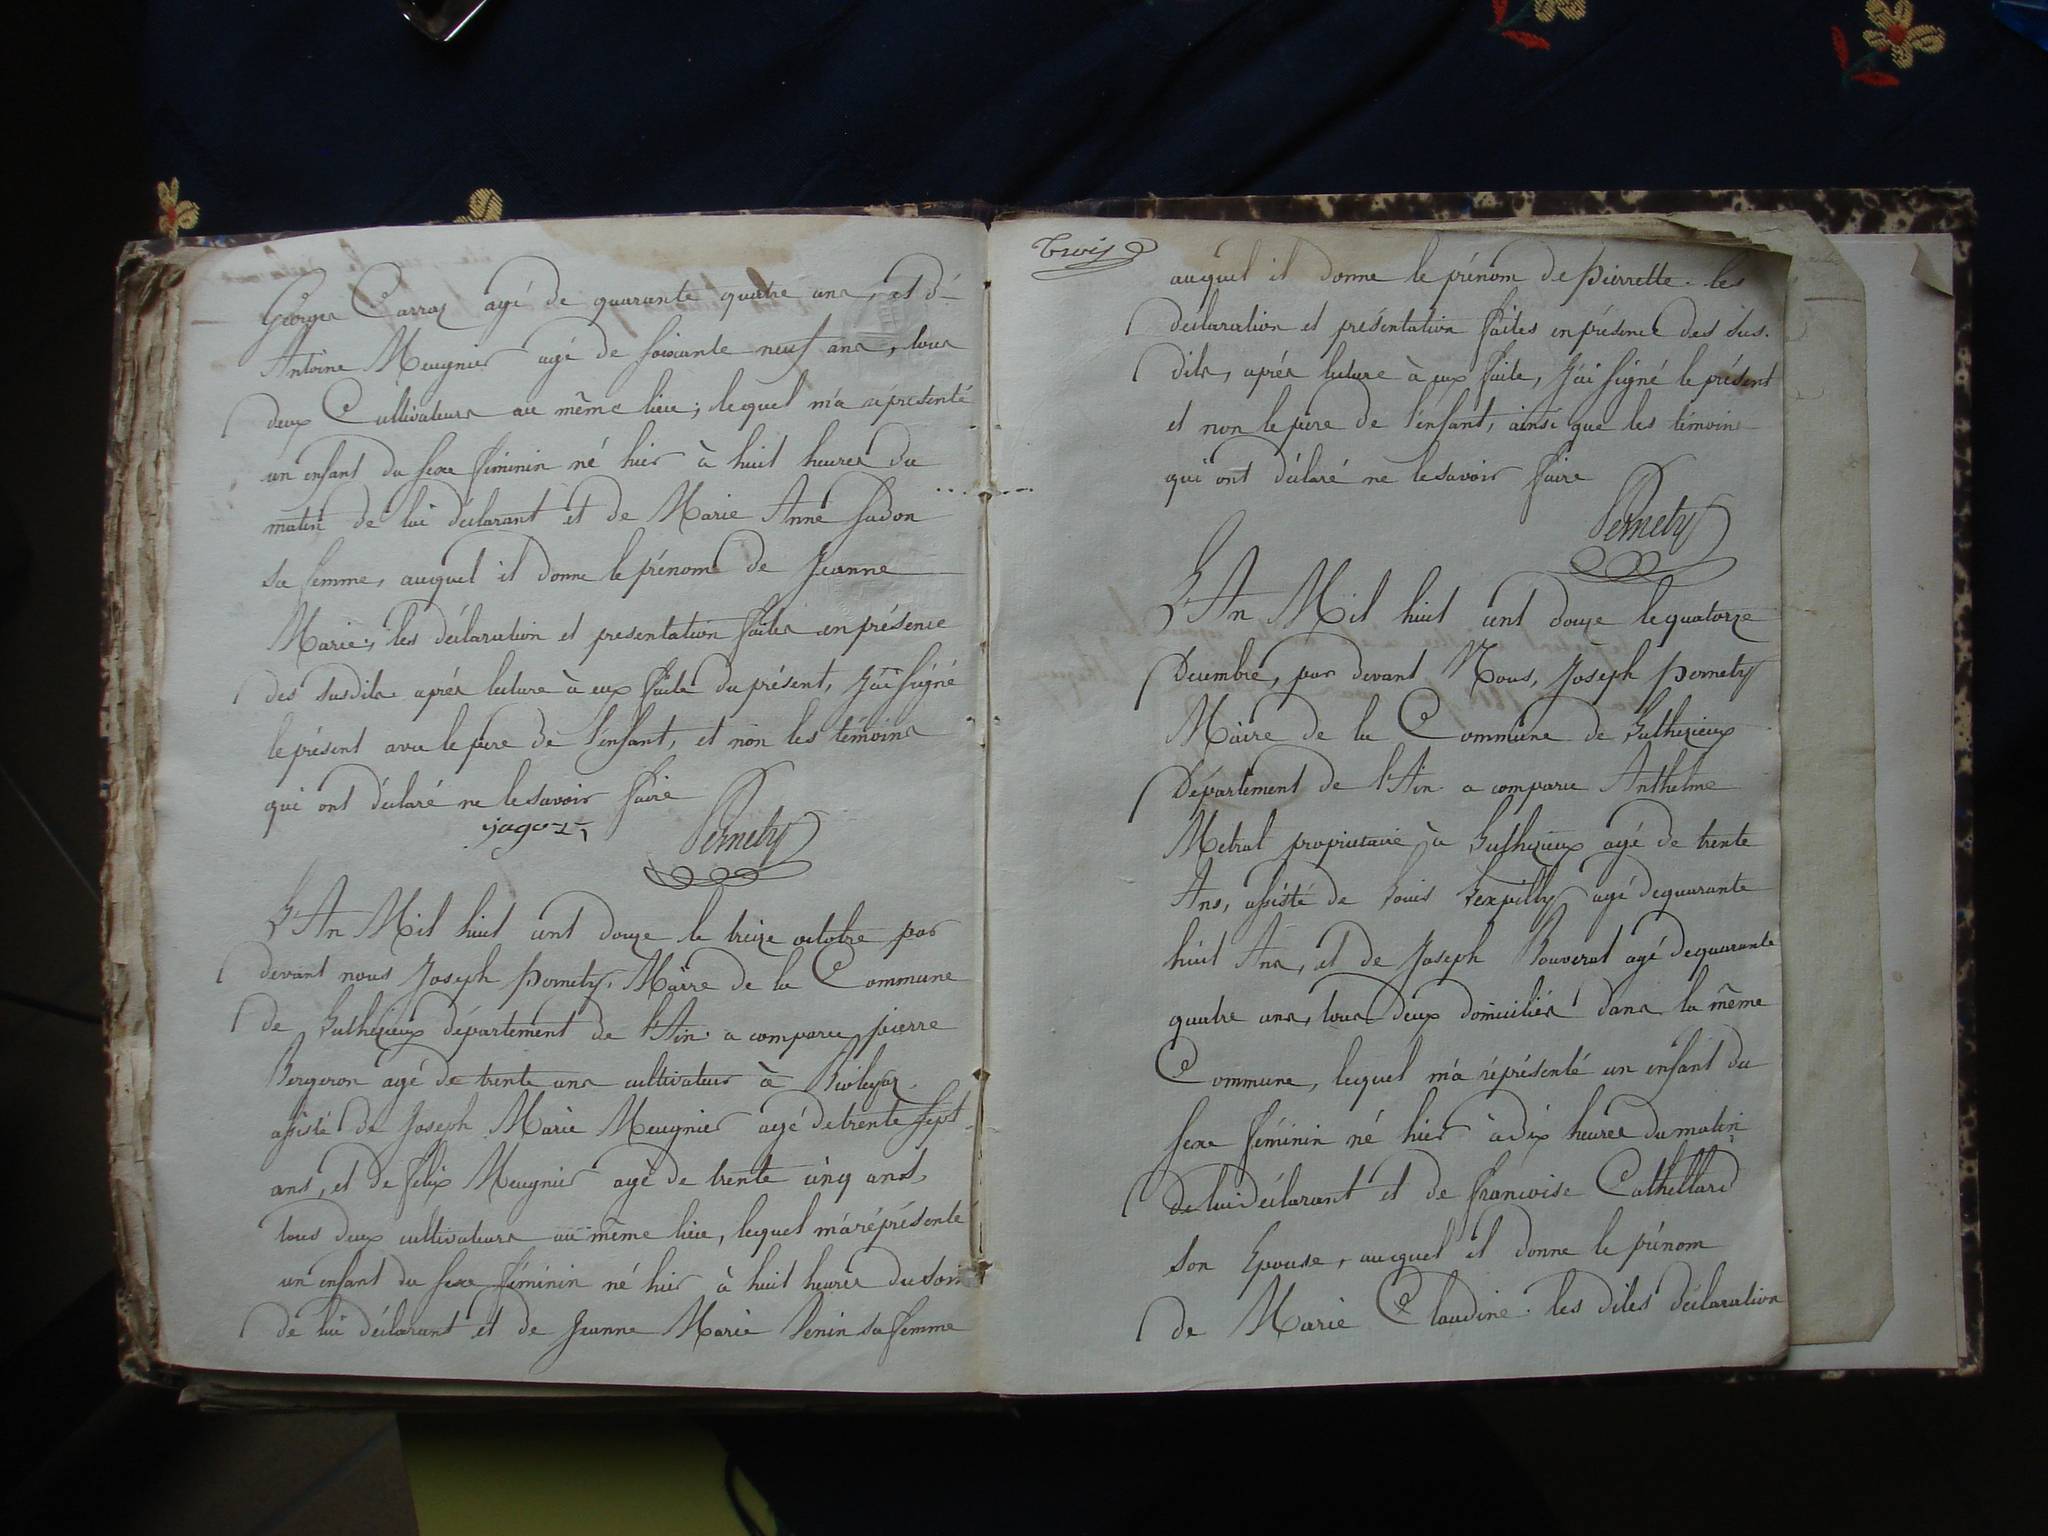 Georges Carraz agé de quarante quatre ans, et d'
Antoine Meugnier agé de soixante neuf ans, tous
deux Cultivateurs au même lieu; lequel m'a représenté
un enfant du sexe féminin né hier à huit heures du
matin de lui déclarant et de Marie Anne
sa femme, auquel il donne le prénom de Jeanne
Marie, les déclaration et presentation faites en présence
des susdits après lecture à eux faite du présent, J'ai signé
le présent avec le pere de l'enfant, et non les témoins
qui ont déclaré ne le savoir faire
Pernety
L'An Mil huit cent douze le treize octobre par
devant nous Joseph pernety, Maire de la Commune
de Luthezieux département de l'Ain a comparu pierre
Bergeron agé de trente ans cultivateur à
assisté de Joseph Marie Meugnier agé de trente sept
ans, et de felix Meugnier agé de trente cinq ans,
tous deux cultivateurs au même lieu, lequel m'a réprésenté
un enfant du sexe féminin né hier à huit heures du soir
de lui déclarant et de Jeanne Marie Venin sa femme
trois
auquel il donne le prénom de pierrette. les
déclaration et présentation faites en présence des sus-
dits, après lecture à eux faite, J'ai signé le présent
et non le pere de l'enfant, ainsi que les témoins
qui ont déclaré ne le savoir faire
Pernety
L'An Mil huit cent douze le quatorze
Decembre, par devant Nous, Joseph pernety
Maire de la Commune de Luthezieux
Département de l'Ain a comparu Anthelme
Metral propriétaire à Luthezieux agé de trente
Ans, assisté de Louis Lexpilly agé de quarante
huit Ans, et de Joseph Bouverat agé de quarante
quatre ans, tous deux domiciliés dans la même
Commune, lequel m'a réprésenté un enfant du
sexe féminin né hier à dix heures du matin
de lui déclarant et de francoise Cathellard
son Epouse, auquel il donne le prénom
de Marie Claudine. les dites déclaration